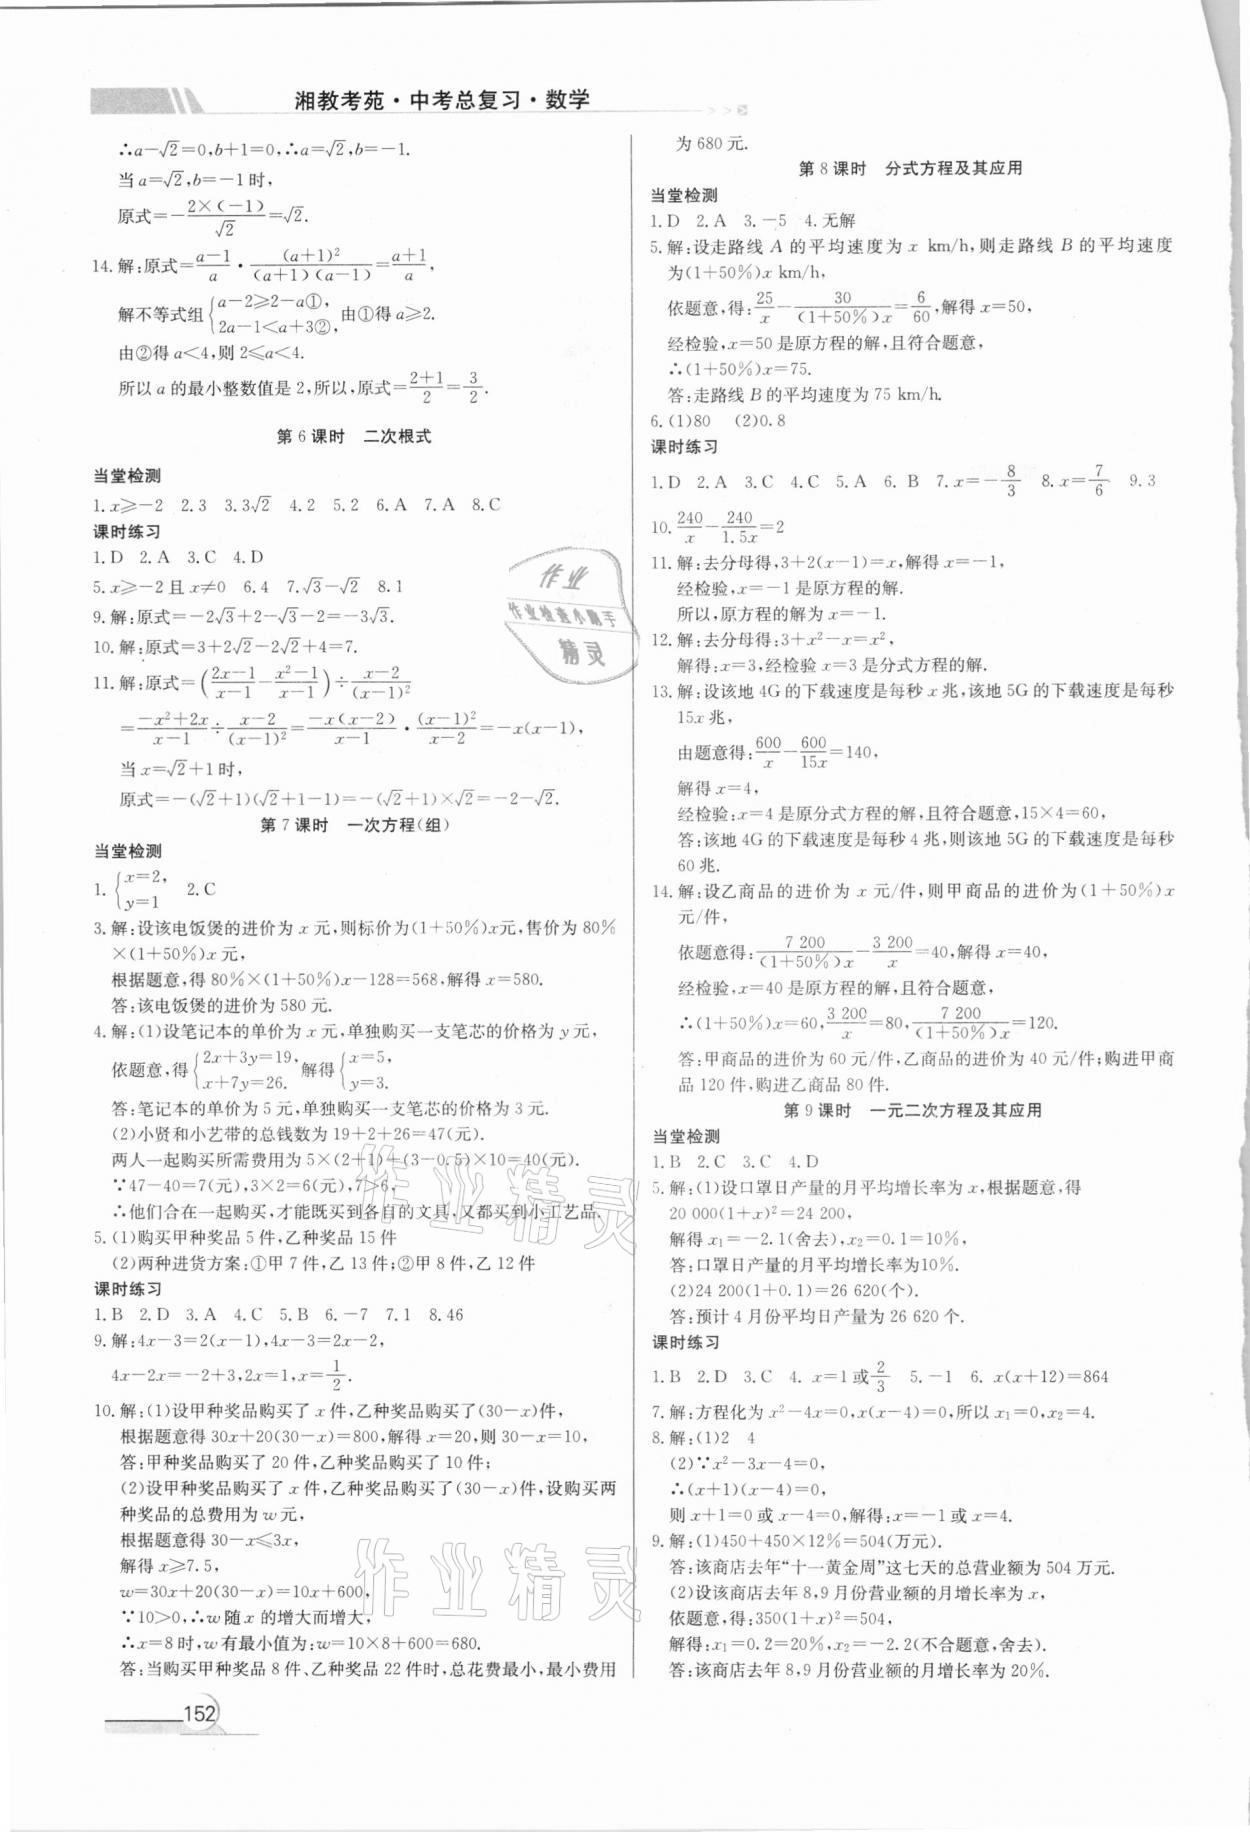 湘教考苑·中考总复习·数学
∴a-√2=0,b+1=0,∴a=√2,b=-1.
当a=√2,b=-1时,
原式=-2×(-1)/√2=√2.
14.解:原式=(a-1)/a·(a+1)²/((a+1)(a-1))=(a+1)/a,
解不等式组{a-2≥2-a①, 2a-1<a+3②, 由①得a≥2.
由②得a<4,则2≤a<4.
所以a的最小整数值是2,所以,原式=(2+1)/2=3/2.
第6课时 二次根式
当堂检测
1.x≥-2 2.3 3.3√2 4.2 5.2 6.A 7.A 8.C
课时练习
1.D 2.A 3.C 4.D
5.x≥-2且x≠0 6.4 7.√3-√2 8.1
9.解:原式=-2√3+2-√3-2=-3√3.
10.解:原式=3+2√2-2√2+4=7.
11.解:原式=((2x-1)/(x-1)-(x²-1)/(x-1))÷(x-2)/(x-1)²
=(-x²+2x)/(x-1)÷(x-2)/(x-1)²=-x(x-2)/(x-1)·(x-1)²/(x-2)=-x(x-1),
当x=√2+1时,
原式=-(√2+1)(√2+1-1)=-(√2+1)×√2=-2-√2.
第7课时 一次方程(组)
当堂检测
1.{x=2, y=1 2.C
3.解:设该电饭煲的进价为x元,则标价为(1+50%)x元,售价为80%
×(1+50%)x元,
根据题意,得80%×(1+50%)x-128=568,解得x=580.
答:该电饭煲的进价为580元.
4.解:(1)设笔记本的单价为x元,单独购买一支笔芯的价格为y元,
依题意,得{2x+3y=19, x+7y=26. 解得{x=5, y=3.
答:笔记本的单价为5元,单独购买一支笔芯的价格为3元.
(2)小贤和小艺带的总钱数为19+2+26=47(元).
两人一起购买所需费用为5×(2+1)+(3-0.5)×10=40(元).
∵47-40=7(元),3×2=6(元),7>6,
∴他们合在一起购买,才能既买到各自的文具,又都买到小工艺品.
5.(1)购买甲种奖品5件,乙种奖品15件
(2)两种进货方案:①甲7件,乙13件;②甲8件,乙12件
课时练习
1.B 2.D 3.A 4.C 5.B 6.-7 7.1 8.46
9.解:4x-3=2(x-1),4x-3=2x-2,
4x-2x=-2+3,2x=1,x=1/2.
10.解:(1)设甲种奖品购买了x件,乙种奖品购买了(30-x)件,
根据题意得30x+20(30-x)=800,解得x=20,则30-x=10,
答:甲种奖品购买了20件,乙种奖品购买了10件;
(2)设甲种奖品购买了x件,乙种奖品购买了(30-x)件,设购买两
种奖品的总费用为w元,
根据题意得30-x≤3x,
解得x≥7.5,
w=30x+20(30-x)=10x+600,
∵10>0,∴w随x的增大而增大,
∴x=8时,w有最小值为:w=10×8+600=680.
答:当购买甲种奖品8件、乙种奖品22件时,总花费最小,最小费用
为680元.
第8课时 分式方程及其应用
当堂检测
1.D 2.A 3.-5 4.无解
5.解:设走路线A的平均速度为x km/h,则走路线B的平均速度
为(1+50%)x km/h,
依题意,得:25/x-30/((1+50%)x)=6/60,解得x=50,
经检验,x=50是原方程的解,且符合题意,
∴(1+50%)x=75.
答:走路线B的平均速度为75 km/h.
6.(1)80 (2)0.8
课时练习
1.D 2.A 3.C 4.C 5.A 6.B 7.x=-8/3 8.x=7/6 9.3
10.240/x-240/1.5x=2
11.解:去分母得,3+2(x-1)=x,解得x=-1,
经检验,x=-1是原方程的解.
所以,原方程的解为x=-1.
12.解:去分母得:3+x²-x=x²,
解得:x=3,经检验x=3是分式方程的解.
13.解:设该地4G的下载速度是每秒x兆,该地5G的下载速度是每秒
15x兆,
由题意得:600/x-600/15x=140,
解得x=4,
经检验:x=4是原分式方程的解,且符合题意,15×4=60,
答:该地4G的下载速度是每秒4兆,则该地5G的下载速度是每秒
60兆.
14.解:设乙商品的进价为x元/件,则甲商品的进价为(1+50%)x
元/件,
依题意得:7 200/((1+50%)x)-3 200/x=40,解得x=40,
经检验,x=40是原方程的解,且符合题意,
∴(1+50%)x=60,3 200/x=80,7 200/((1+50%)x)=120.
答:甲商品的进价为60元/件,乙商品的进价为40元/件;购进甲商
品120件,购进乙商品80件.
第9课时 一元二次方程及其应用
当堂检测
1.B 2.C 3.C 4.D
5.解:(1)设口罩日产量的月平均增长率为x,根据题意,得
20 000(1+x)²=24 200,
解得x₁=-2.1(舍去),x₂=0.1=10%,
答:口罩日产量的月平均增长率为10%.
(2)24 200(1+0.1)=26 620(个).
答:预计4月份平均日产量为26 620个.
课时练习
1.B 2.D 3.C 4.x=1或2/3 5.-1 6.x(x+12)=864
7.解:方程化为x²-4x=0,x(x-4)=0,所以x₁=0,x₂=4.
8.解:(1)2 4
(2)∵x²-3x-4=0,
∴(x+1)(x-4)=0,
则x+1=0或x-4=0,解得:x=-1或x=4.
9.解:(1)450+450×12%=504(万元).
答:该商店去年“十一黄金周”这七天的总营业额为504万元.
(2)设该商店去年8,9月份营业额的月增长率为x,
依题意,得:350(1+x)²=504,
解得:x₁=0.2=20%,x₂=-2.2(不合题意,舍去).
答:该商店去年8,9月份营业额的月增长率为20%.
152
作业
作业检查小助手
精灵
作业精灵
作业精灵